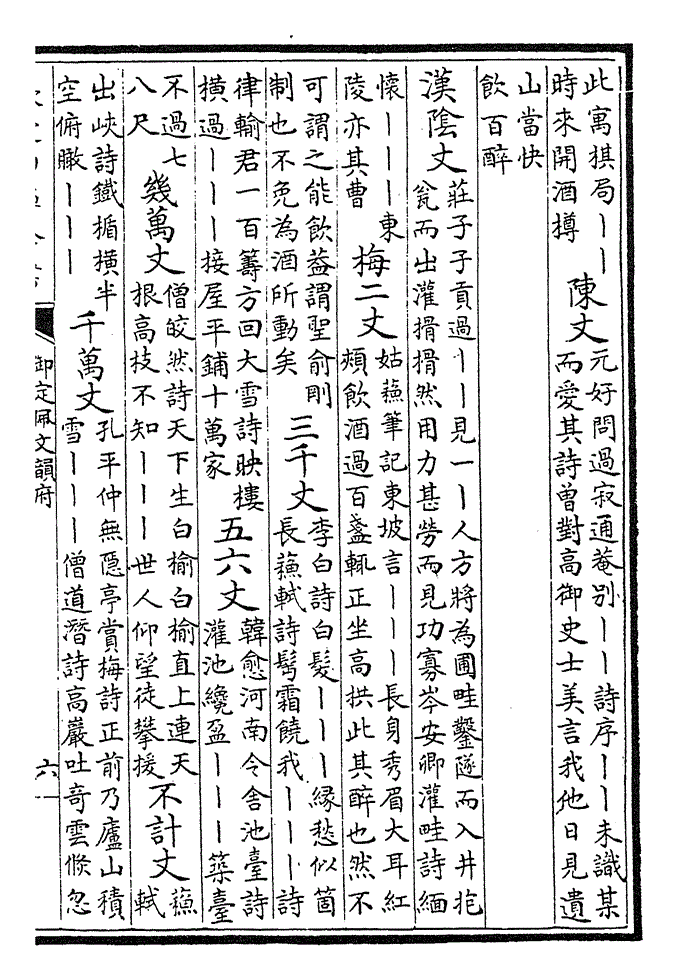 此寓棋局〡〡
時來開酒樽
陳丈
元好問過寂通菴别〡〡詩序〡〡未識某
而愛其詩曾對高御史士美言我他日見遺
山當快
飲百醉
漢陰丈
莊子子貢過〡〡見一〡人方將為圃畦鑿隧而入井抱
甕而出灌搰搰然用力甚勞而見功寡岑安卿灌畦詩緬
懷〡〡〡東
陵亦其曹
梅二丈
姑蘓筆記東坡言〡〡〡長身秀眉大耳紅
頰飲酒過百盞輒正坐高拱此其醉也然不
可謂之能飲益謂聖俞剛
制也不免為酒所動矣
三千丈
李白詩白髮〡〡〡緣愁似箇
長蘓軾詩鬢霜饒我〡〡〡詩
律輸君一百籌方回大雪詩映樓
橫過〡〡〡接屋平鋪十萬家
五六丈
韓愈河南令舍池臺詩
灌池纔盈〡〡〡築臺
不過七
八尺
幾萬丈
僧皎然詩天下生白榆白榆直上連天
根高技不知〡〡〡世人仰望徒攀援
不計丈
蘓
軾
出峽詩鐵楯橫半
空俯瞰〡〡〡
千萬丈
孔平仲無隱亭賞梅詩正前乃廬山積
雪〡〡〡僧道潛詩高巖吐奇雲倐忽
御定佩文韻府
六